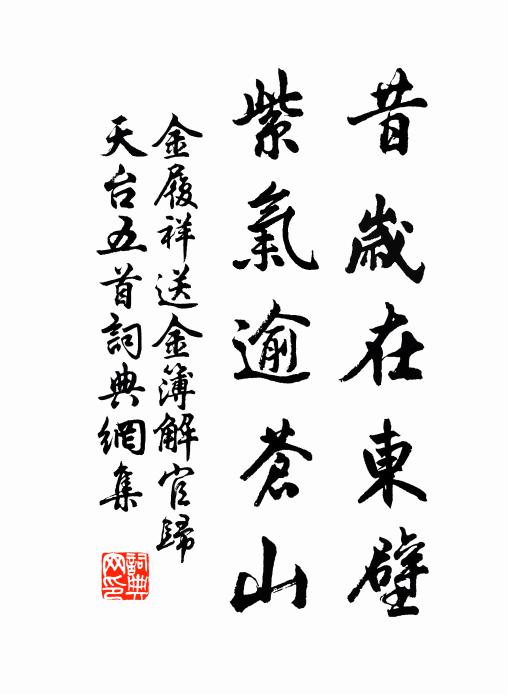 昔歲在東壁
紫氣逾蒼山
金履祥送金簿解官歸
天台五首詞典網集
詞典網印